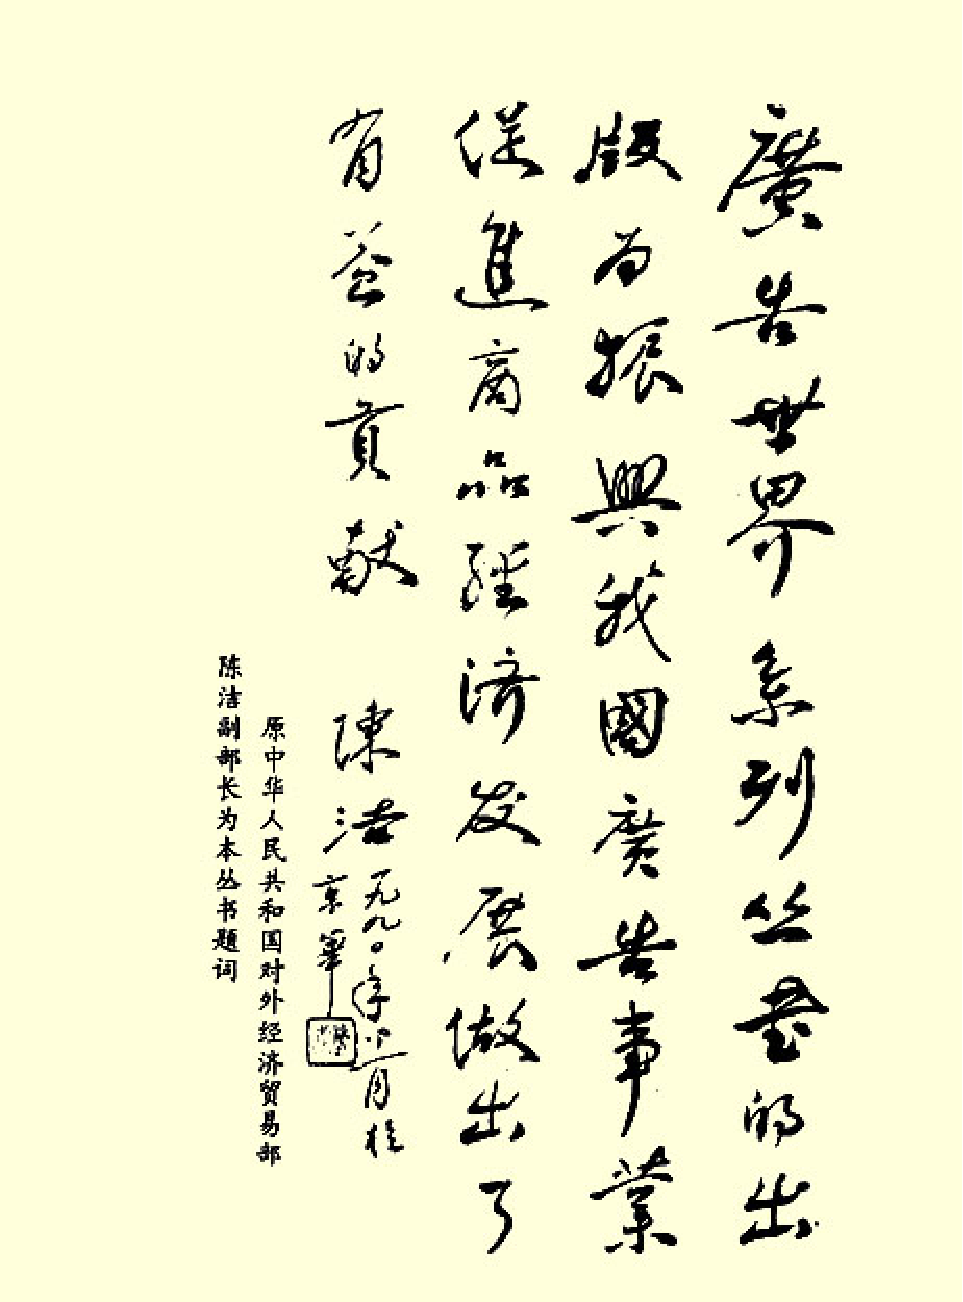 廣告世界系列丛書的出
版为振興我國廣告事業
促進商品經济发展做出了
有益的貢献
陳洁
一九九〇年
京華
原中华人民共和国对外经济贸易部
陈洁副部长为本丛书题词